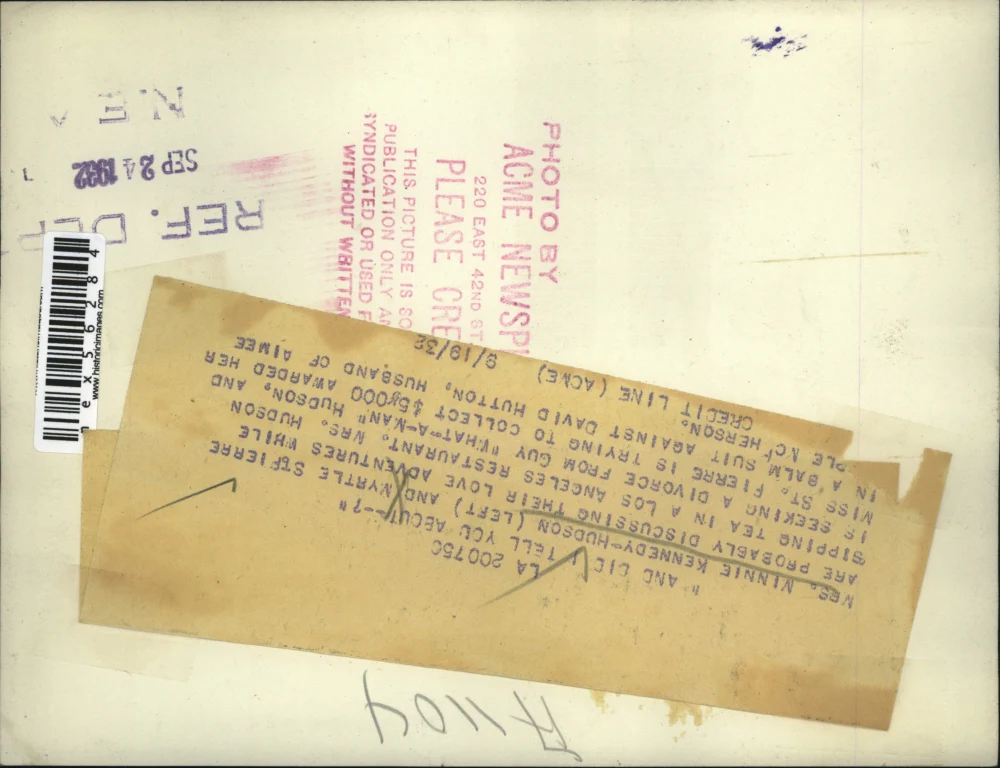 N.E.A
SEP 24 1932
REF. DEP
PHOTO BY
ACME NEWSP
220 EAST 42ND ST
PLEASE CRE
THIS PICTURE IS SO
PUBLICATION ONLY AN
SYNDICATED OR USED F
WITHOUT WRITTEN
mex56284
www.historicimages.com
LA 200750
" AND DID I TELL YOU ABOUT--?"
MRS. MINNIE KENNEDY-HUDSON (LEFT) AND MYRTLE ST PIERRE
ARE PROBABLY DISCUSSING THEIR LOVE ADVENTURES WHILE
SIPPING TEA IN A LOS ANGELES RESTAURANT. MRS. HUDSON
IS SEEKING A DIVORCE FROM GUY "WHAT-A-MAN" HUDSON, AND
MISS ST. PIERRE IS TRYING TO COLLECT $5,000 AWARDED HER
IN A BALM SUIT AGAINST DAVID HUTTON, HUSBAND OF AIMEE
PLE MC HERSON.
CREDIT LINE (ACME) 9/19/32
A1104